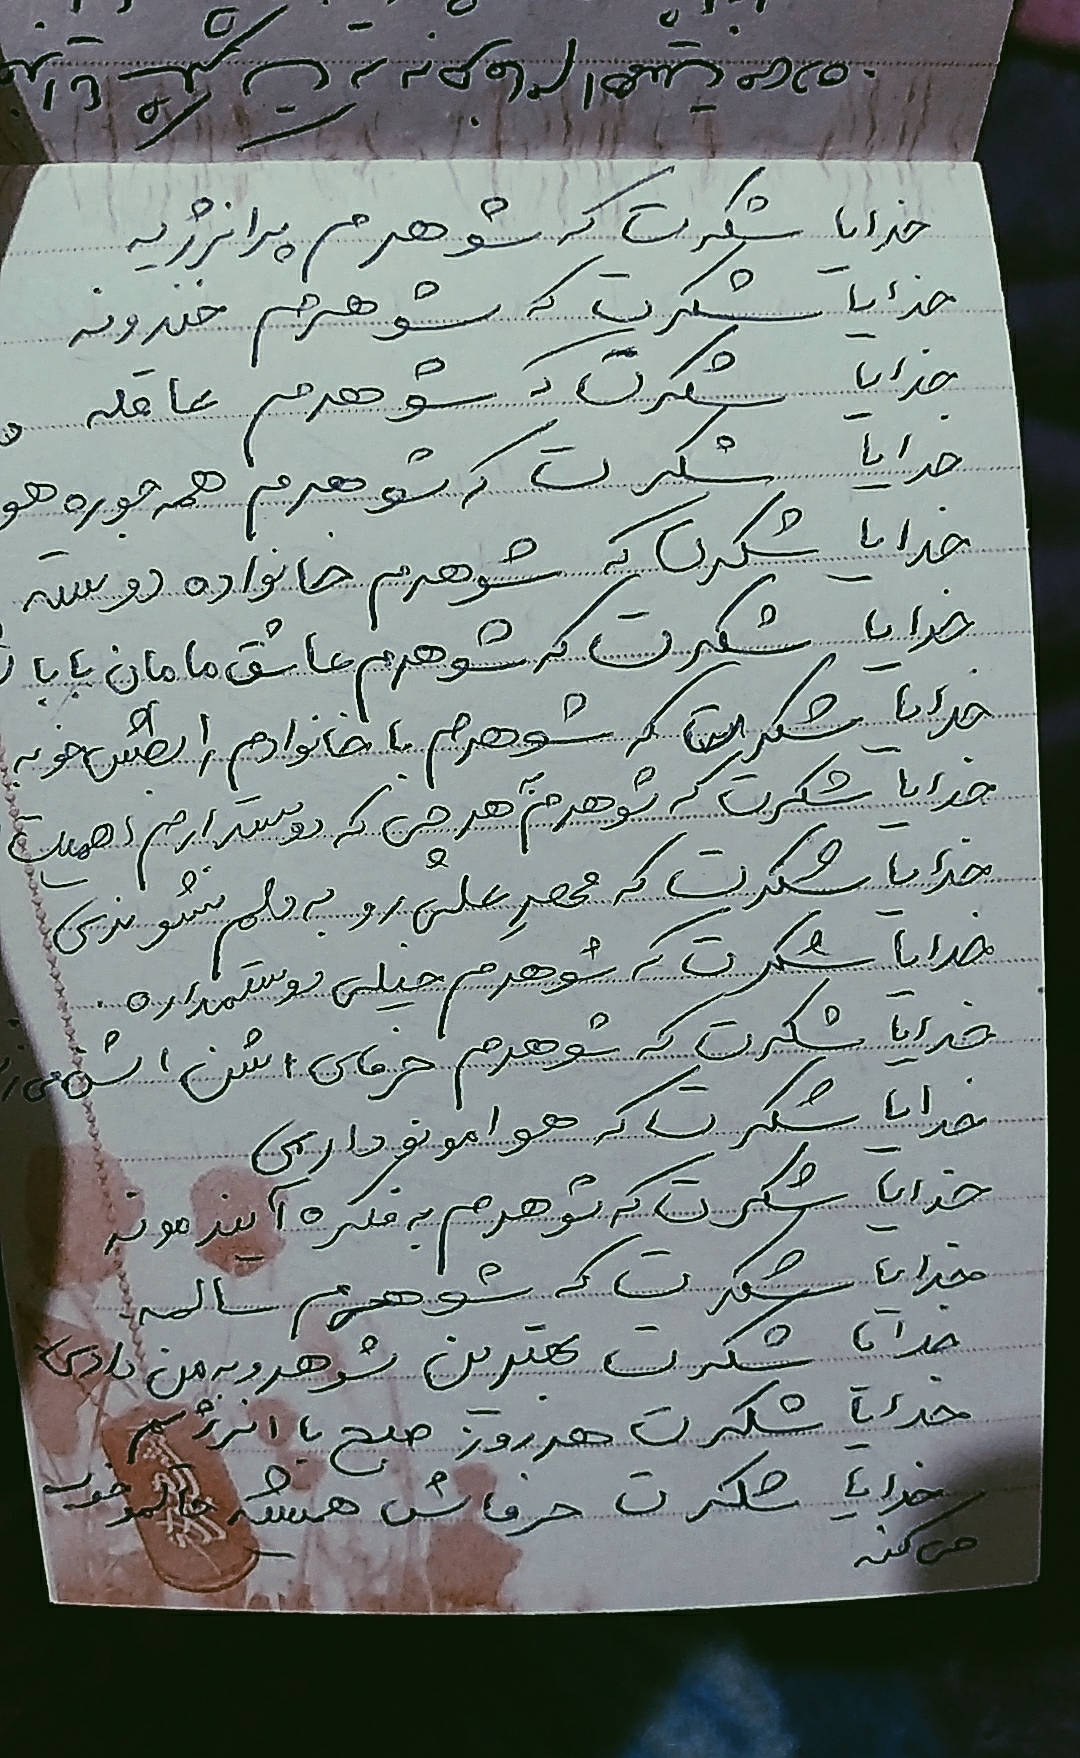 خدایا شکرت که شوهرم پرانرژیه
خدایا شکرت که شوهرم خندونه
خدایا شکرت که شوهرم عاقله
خدایا شکرت که شوهرم همه جوره
خدایا شکرت که شوهرم خانواده دوسته
خدایا شکرت که شوهرم عاشق مامان بابا
خدایا شکرت که شوهرم با خانوادم رابطش خوبه
خدایا شکرت که شوهرم هرچی که دوستدارم اهمیت
خدایا شکرت که رو به دلم نشوندی
خدایا شکرت که شوهرم خیلی دوستمداره.
خدایا شکرت که شوهرم حرفای
خدایا شکرت که هوامونو داری
خدایا شکرت که شوهرم به فکره آیندمونه
خدایا شکرت که شوهرم سالمه
خدایا شکرت بهترین شوهرو به من دادی
خدایا شکرت هرروز صبح با انرژیم
خدایا شکرت حرفاش همیشه حالمو خوب
می کنه